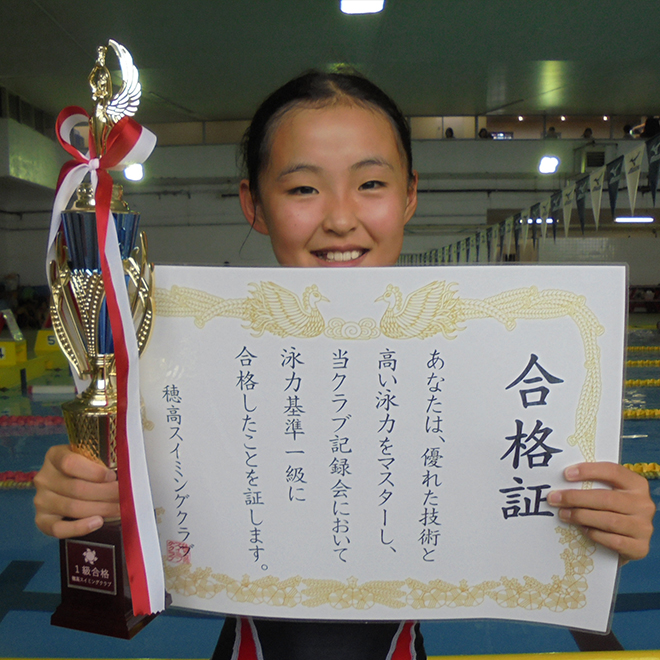 合格証
あなたは、優れた技術と
高い泳力をマスターし、
当クラブ記録会において
泳力基準一級に
合格したことを証します。
穂高スイミングクラブ
1級合格
穂高スイミングクラブ